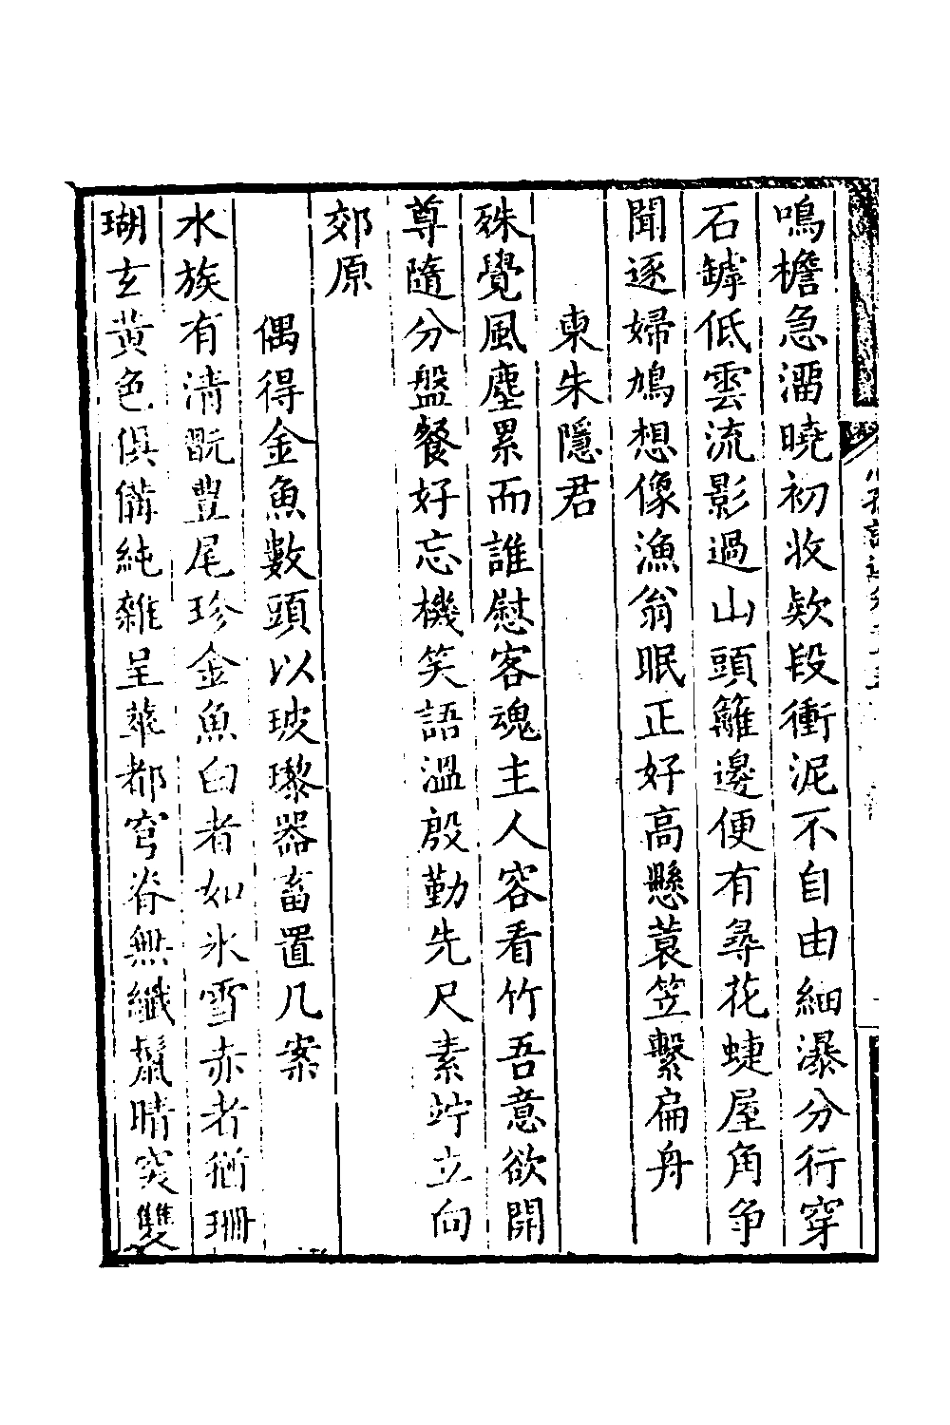 鳴檐急溜曉初收欵段衝泥不自由細瀑分行穿
石罅低雲流影過山頭籬邊便有尋花蜨屋角爭
聞逐婦鳩想像漁翁眠正好高懸蓑笠繫扁舟
柬朱隱君
殊覺風塵累而誰慰客魂主人容看竹吾意欲開
尊隨分盤餐好忘機笑語溫殷勤先尺素竚立向
郊原
偶得金魚數頭以玻瓈器畜置几案
水族有清翫豐尾珍金魚白者如氷雪赤者猶珊
瑚玄黃色俱備純雜呈華都穹脊無纖鬣睛突雙